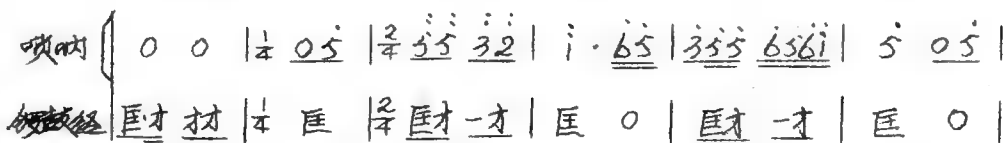 唢呐 0 0 | 1/4 0 5̇ | 2/4 5̇ 5̇ 3̇ 2̇ | i̇ · 6̇ 5̇ | 3̇ 5̇ 5̇ 6̇ 5̇ 6̇ i̇ | 5̇ 0 5̇ |
锣鼓经 匡·才 才才 | 1/4 匡 | 2/4 匡才 一才 | 匡 0 | 匡才 一才 | 匡 0 |